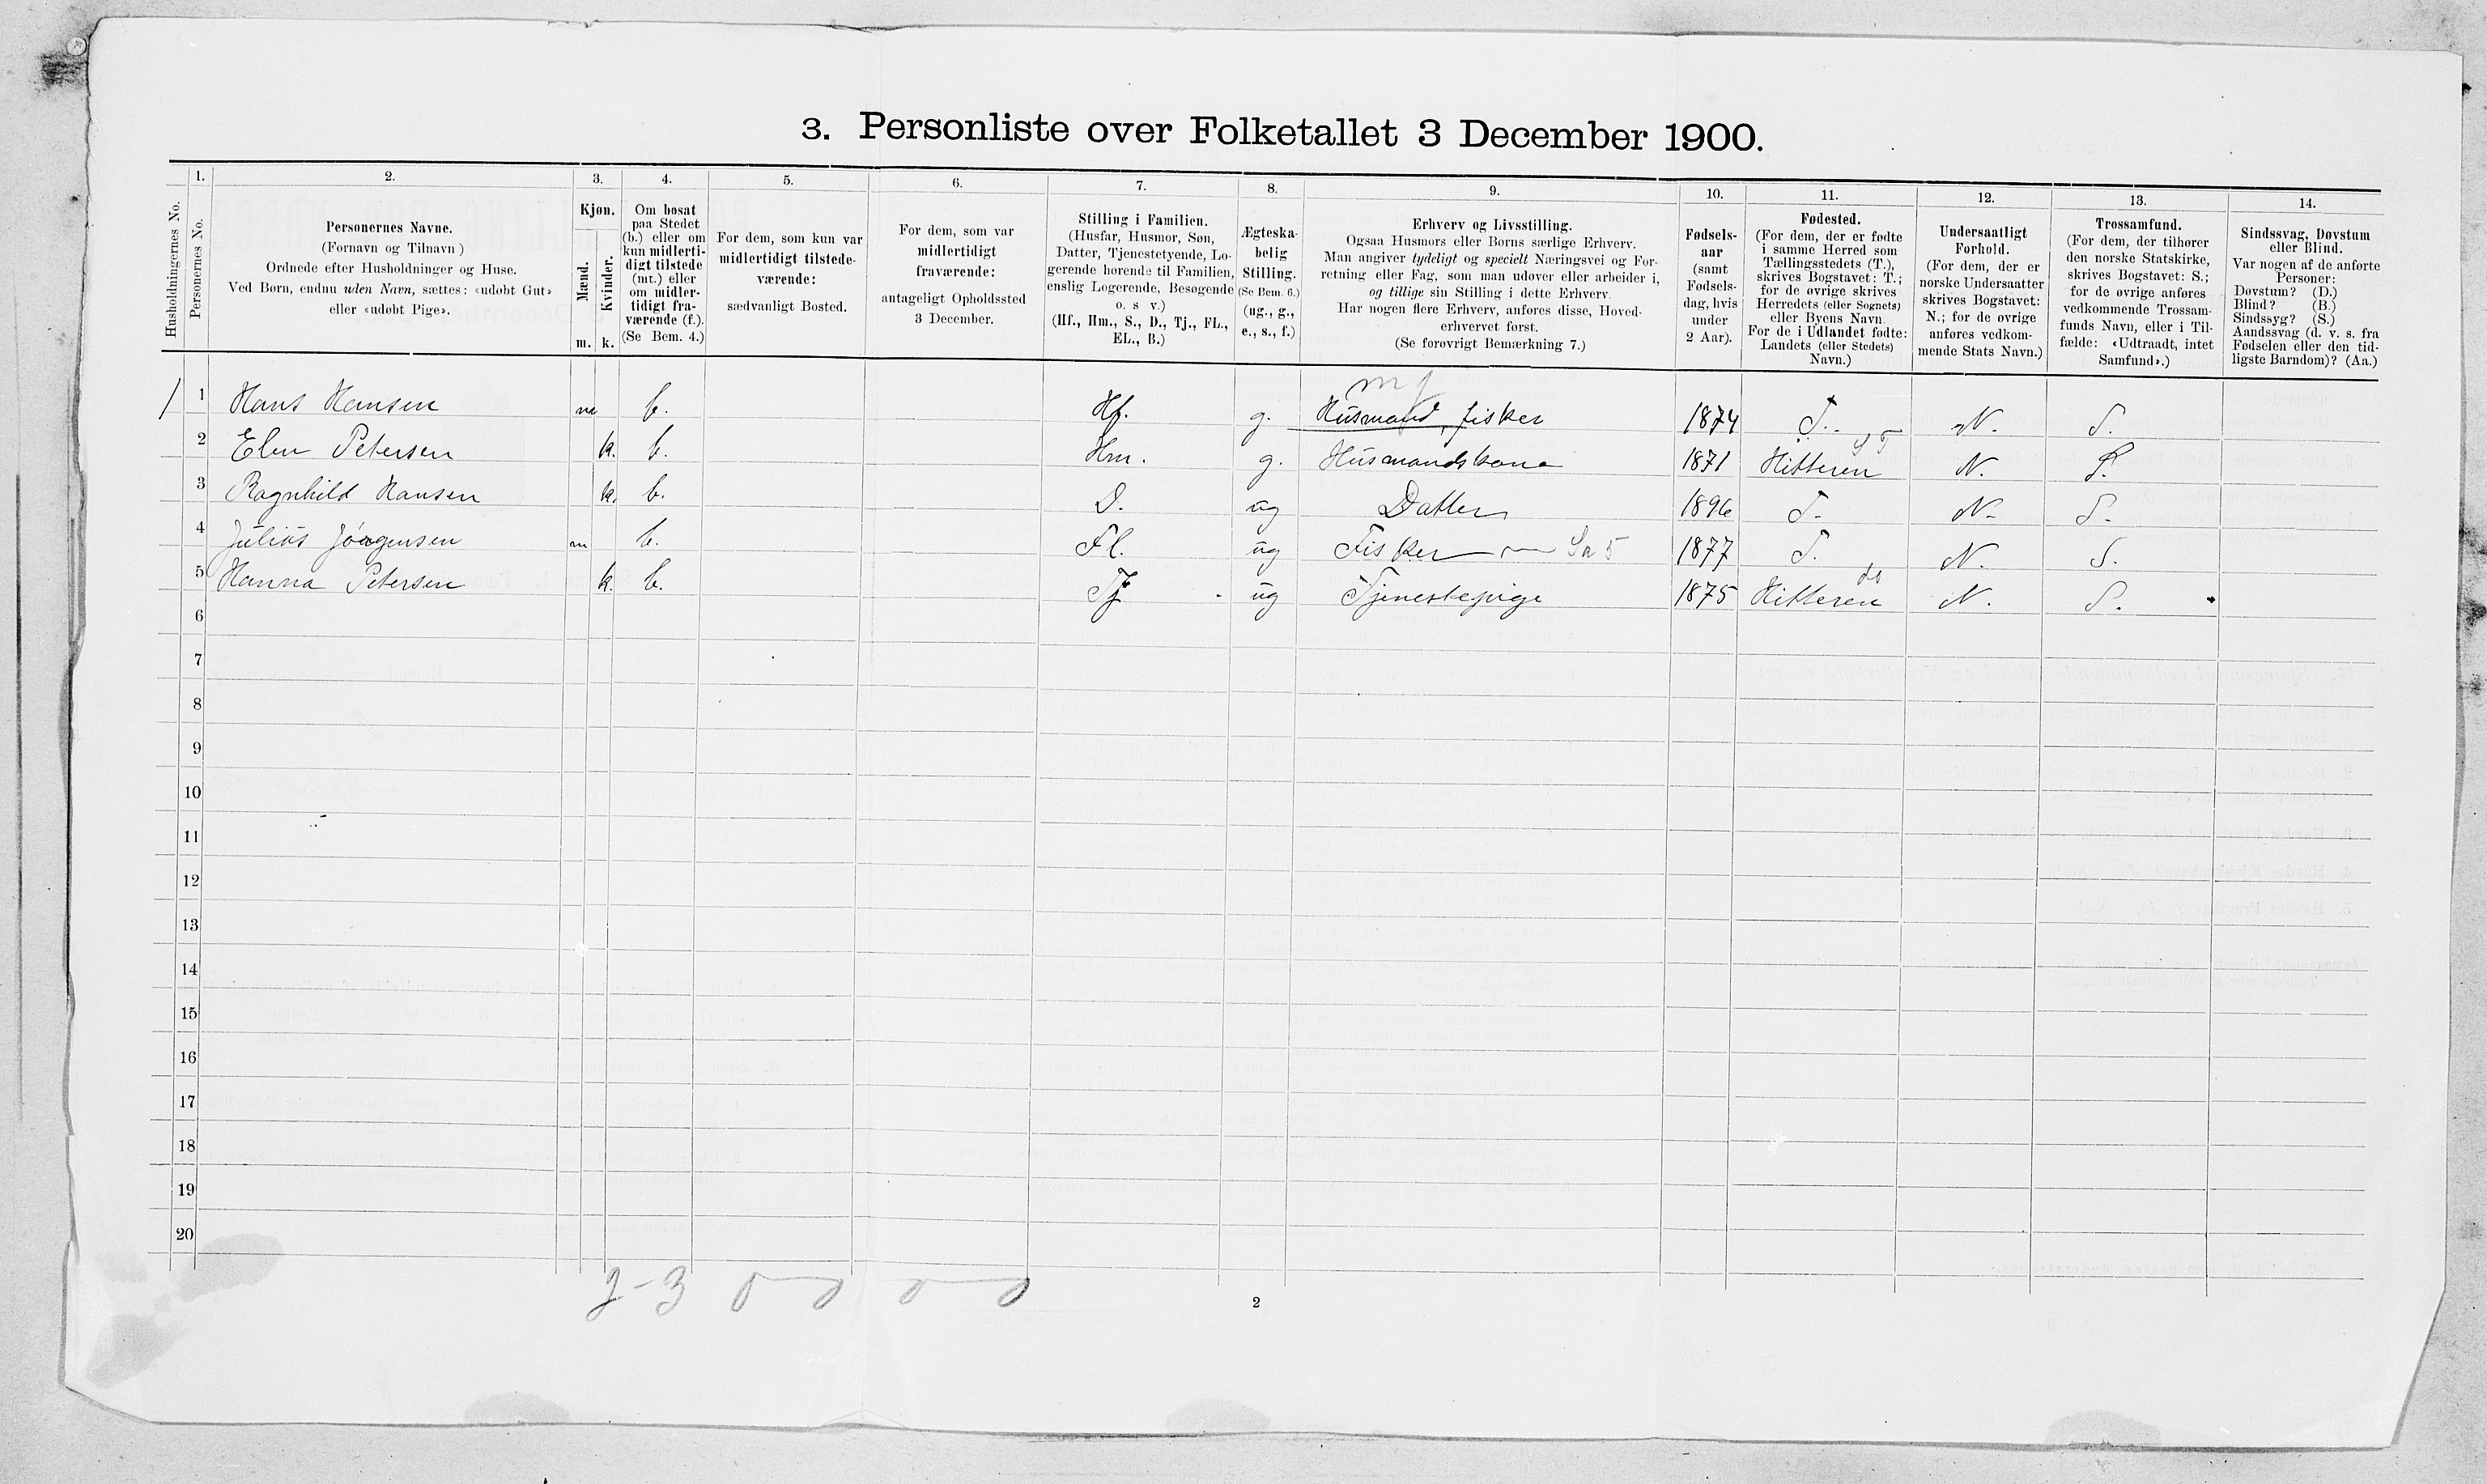 3. Personliste over Folketallet 3 December 1900.
Husholdningernes No.
1.
Personernes No.
2.
Personernes Navne.
(Fornavn og Tilnavn)
Ordnede efter Husholdninger og Huse.
Ved Børn, endnu uden Navn, sættes: «udøbt Gut»
eller «udøbt Pige».
3.
Kjøn.
Mænd.
Kvinder.
m. k.
4.
Om bosat
paa Stedet
(b.) eller om
kun midlerti-
digt tilstede
(mt.) eller
om midler-
tidigt fra-
værende (f.).
(Se Bem. 4.)
5.
For dem, som kun var
midlertidigt tilstede-
værende:
sædvanligt Bosted.
6.
For dem, som var
midlertidigt
fraværende:
antageligt Opholdssted
3 December.
7.
Stilling i Familien.
(Husfar, Husmor, Søn,
Datter, Tjenestetyende, Lo-
gerende hørende til Familien,
enslig Logerende, Besøgende
o. s v.)
(Hf., Hm., S., D., Tj., FL.,
EL., B.)
8.
Ægteska-
belig
Stilling.
(Se Bem. 6.)
(ug., g.,
e., s., f.)
9.
Erhverv og Livsstilling.
Ogsaa Husmors eller Børns særlige Erhverv.
Man angiver tydeligt og specielt Næringsvei og For-
retning eller Fag, som man udøver eller arbeider i,
og tillige sin Stilling i dette Erhverv.
Har nogen flere Erhverv, anføres disse, Hoved-
erhvervet først.
(Se forøvrigt Bemærkning 7.)
10.
Fødsels-
aar
(samt
Fødsels-
dag, hvis
under
2 Aar).
11.
Fødested.
(For dem, der er fødte
i samme Herred som
Tællingsstedets (T.),
skrives Bogstavet: T.;
for de øvrige skrives
Herredets (eller Sognets)
eller Byens Navn
For de i Udlandet fødte:
Landets (eller Stedets)
Navn.)
12.
Undersaatligt
Forhold.
(For dem, der er
norske Undersaatter
skrives Bogstavet:
N.; for de øvrige
anføres vedkom-
mende Stats Navn.)
13.
Trossamfund.
(For dem, der tilhører
den norske Statskirke,
skrives Bogstavet: S.;
for de øvrige anføres
vedkommende Trossam-
funds Navn, eller i Til-
fælde: «Udtraadt, intet
Samfund».)
14.
Sindssvag, Døvstum
eller Blind.
Var nogen af de anførte
Personer:
Døvstum? (D.)
Blind? (B.)
Sindssyg? (S.)
Aandssvag (d. v. s. fra
Fødselen eller den tid-
ligste Barndom)? (Aa.)
1 Hans Hansen m b. Hf. g. Husmand, fisker 1874 T. N. S.
2 Elen Petersen k. b. Hm. g. Husmandskone 1871 Hitteren N. S.
3 Ragnhild Hansen k. b. D. ug Datter 1896 T. N. S.
4 Julius Jörgensen m b. Fl. ug Fisker 1877 T. N. S.
5 Hanna Petersen k. b. Tj ug Tjenestepige 1875 Hitteren N. S.
6
7
8
9
10
11
12
13
14
15
16
17
18
19
20
2-3 0 0 0 0
2